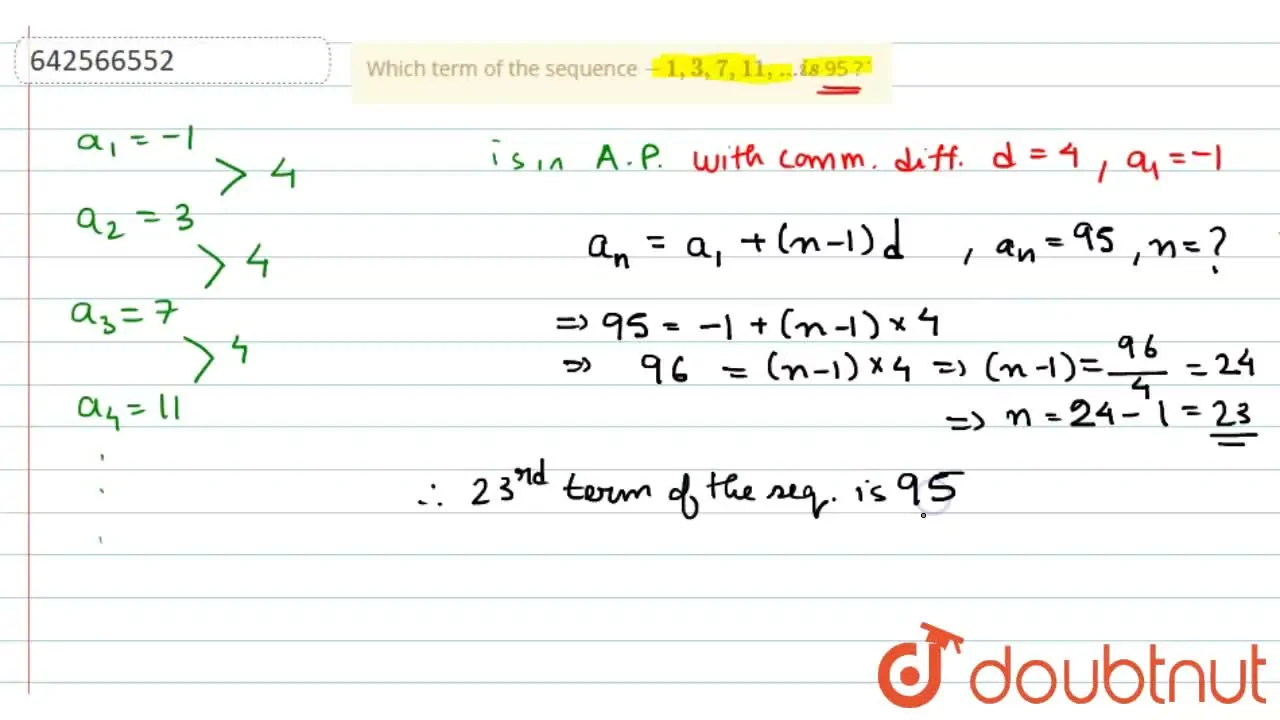 642566552
Which term of the sequence – 1, 3, 7, 11, ...is 95 ?`
a₁ = -1
> 4
a₂ = 3
> 4
a₃ = 7
> 4
a₄ = 11
.
.
.
is in A.P. with comm. diff. d = 4 , a₁ = -1
aₙ = a₁ + (n-1)d , aₙ = 95 , n = ?
=> 95 = -1 + (n-1) × 4
=> 96 = (n-1) × 4 => (n-1) = 96/4 = 24
=> n = 24 - 1 = 23
∴ 23rd term of the seq. is 95
doubtnut